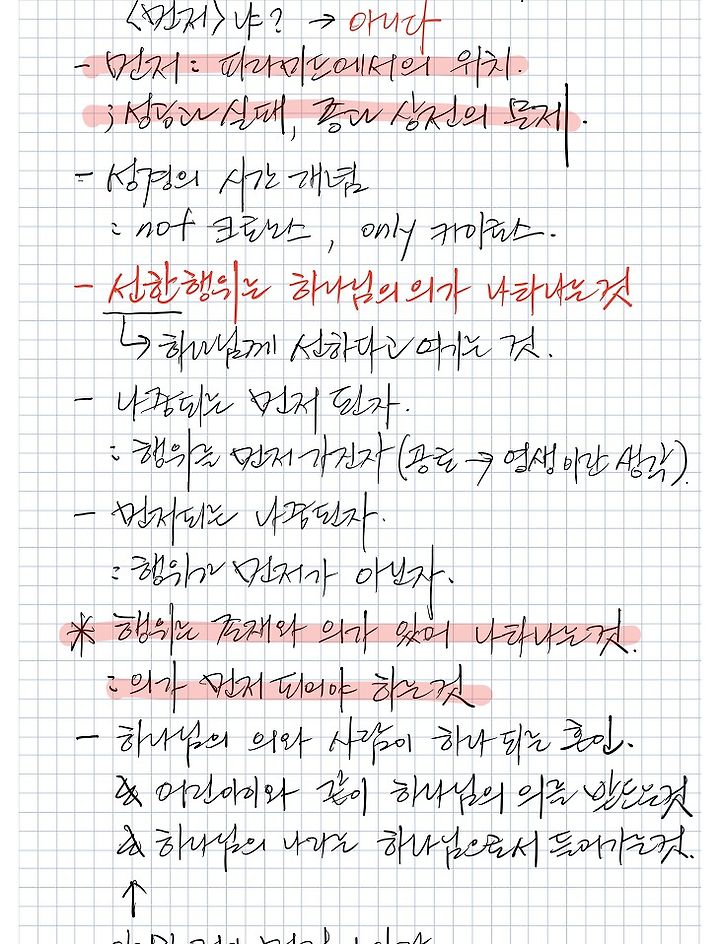 <먼저>냐? → 아니다
- 먼저: 피라미드에서의 위치.
; 성공과 실패, 종과 상전의 문제.
- 성경의 시간 개념
: not 크로노스, only 카이로스.
- 선한행위는 하나님의 의가 나타나는 것
↳ 하나님께 선하다고 여기는 것.
- 나중되는 먼저 된자.
: 행위를 먼저 가진자 (공로 → 영생이란 생각).
- 먼저되는 나중된자.
: 행위가 먼저가 아닌자.
* 행위는 존재와 의가 있어 나타나는 것.
: 의가 먼저 되어야 하는 것
- 하나님의 의와 사람이 하나 되는 혼인.
& 어린아이와 같이 하나님의 의를 받드는 것
& 하나님의 나라는 하나님으로서 들어가는 것.
↑